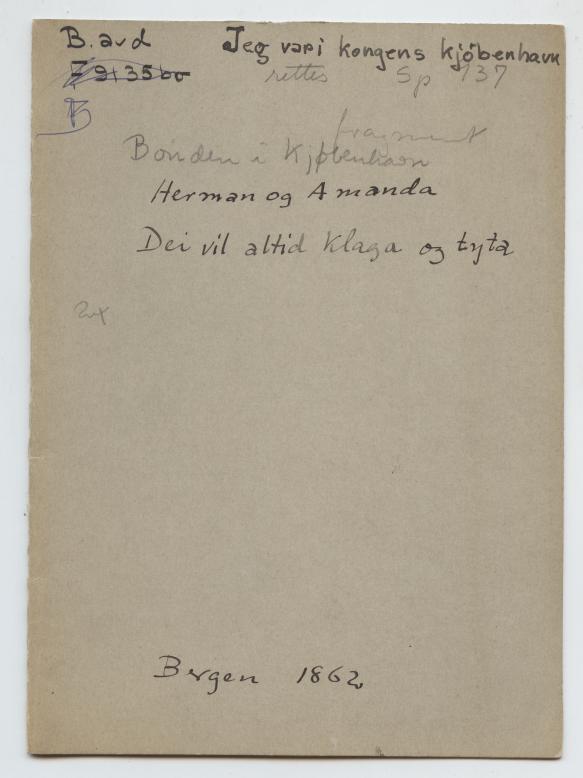 B. avd Jeg var i kongens kjöbenhavn
rettes Sp 137
B
fragment
Bonden i Kjøbenhavn
Herman og Amanda
Dei vil altid klaga og tyta
2x
Bergen 1862